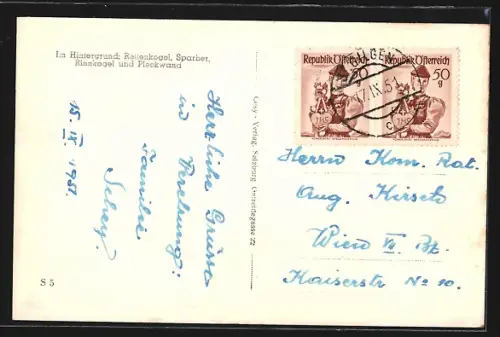 Im Hintergrund: Rettenkogel, Sparber,
Rinnkogel und Pleckwand
15. IX. 1951.
Herzliche Grüsse
in Verehrung:
Familie
S 5
Cosy-Verlag, Salzburg, Getreidegasse 22
Republik Österreich
50
g
Republik Österreich
50
g
GILGEN
17.IX.51
Herrn Kom. Rat.
Aug. Kirsch
Wien VII. Bz.
Kaiserstr No 10.